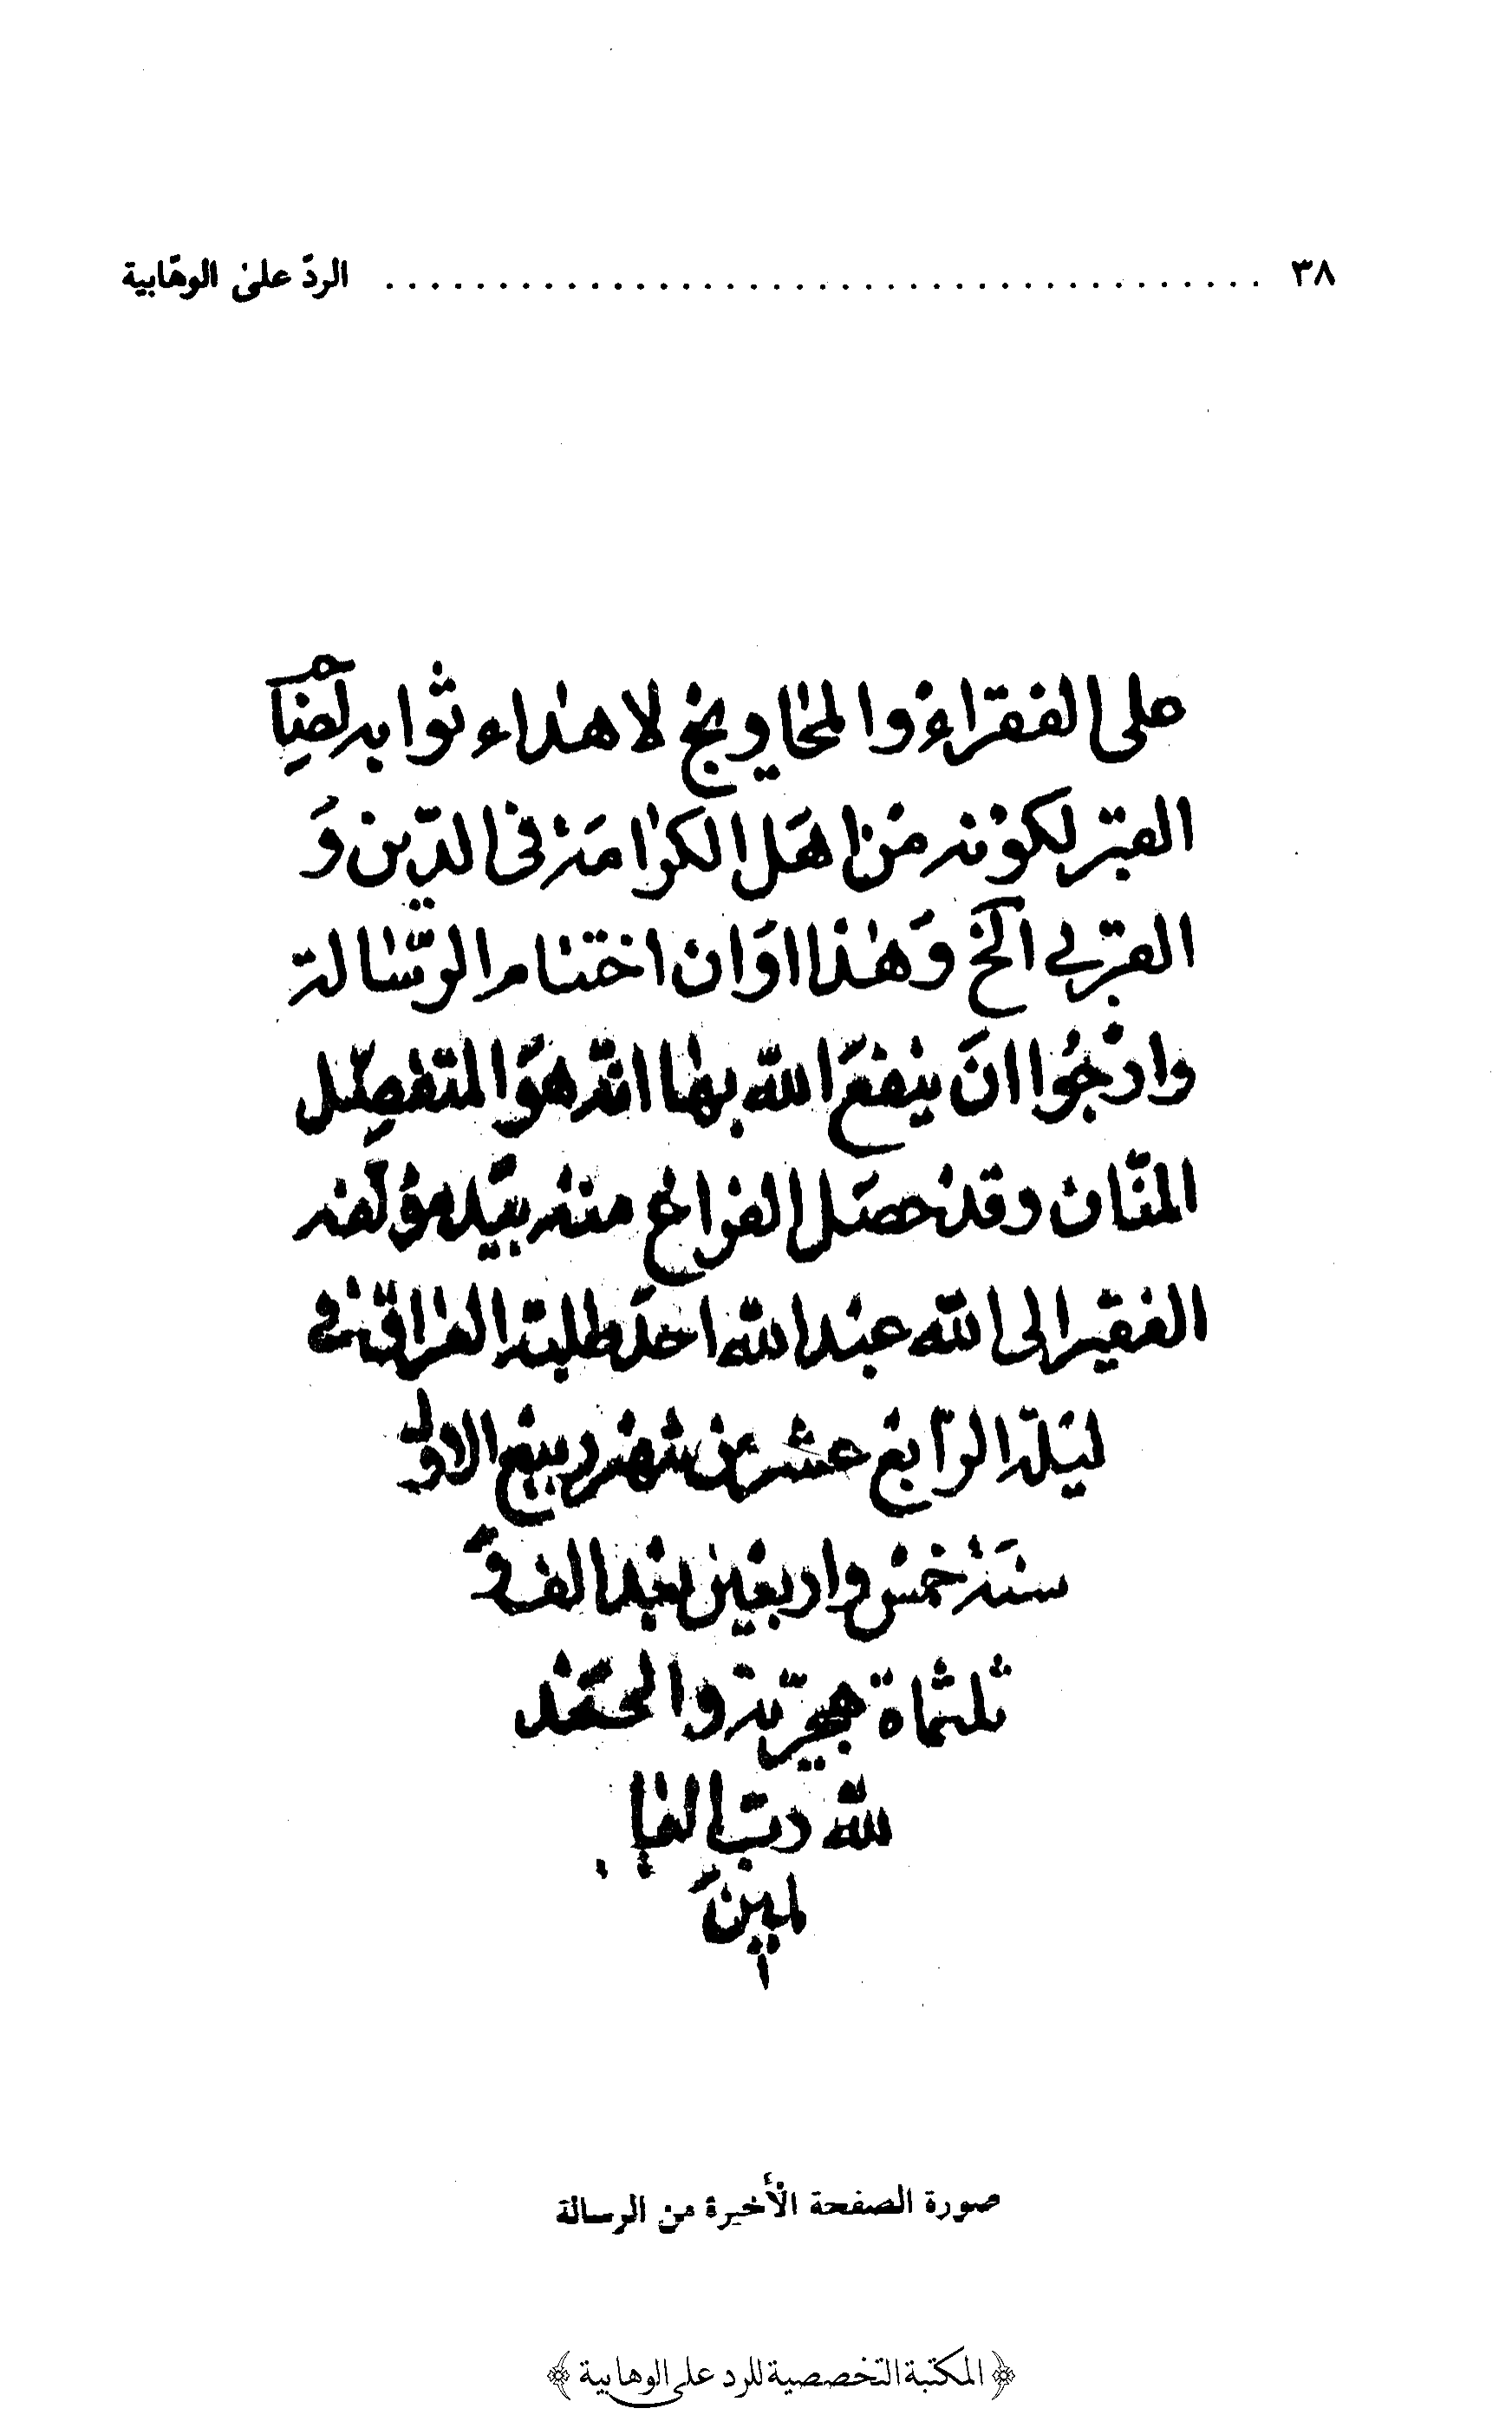 ٣٨ ........................................ الردّ على الوهّابية
على الفقراء والمحاويج لاهداء ثوابه لصاحب
القبر لكونه من اهل الكرامة فى الدّين و
القربى الخ وهذا اوان اختتام الرّسالة
وارجوا ان ينفع الله بها انّه هو المتفضّل
المنّان وقد حصل الفراغ منه بيد مؤلّفه
الفقير الى الله عبد الله احد طلبة العراق فى
ليلة الرّابع عشر من شهر ربيع الاوّل
سنة خمس واربعين بعد الف و
ثلثماة هجريّة والحمد
لله ربّ العا
لمين
صورة الصفحة الأخيرة من الرسالة
﴿ المكتبة التخصصية للرد على الوهابية ﴾